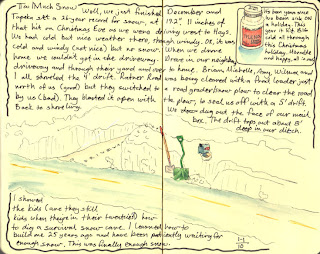 Too Much Snow Well, we just finished December and
Topeka set a 26-year record for snow, at 19.2" 11 inches of
that hit on Christmas Eve as we were driving west to Hays.
We had cold but nice weather there, though windy. OK, it was
cold and windy (not nice) but no snow. When we drove
home we couldn't get in the driveway. Drove in our neighbor's
driveway and through their yard and over to home. Brian, Michelle, Amy, Wilma and
I all shoveled the drift. Rather Road was being cleared with a front loader just
north of us (good) but they switched to a road grader/snow plow to clear the road
by us (bad). They blasted it open with the plow, to seal us off with a 5' drift.
Back to shoveling.
We even dug out the face of our mail
box. The drift tops out about 8'
deep in our ditch.
I's been nice
we been sick ON
a holiday. This
year it hit
and all through
this Christmas
holiday. Miserable
and happy, all in one
I showed
the kids (are they still
kids when they're in their twenties?) how
to dig a survival snow cave. I learned how to
build one 25 years ago and have been patiently waiting for
enough snow. This was finally enough snow.
1-1
10